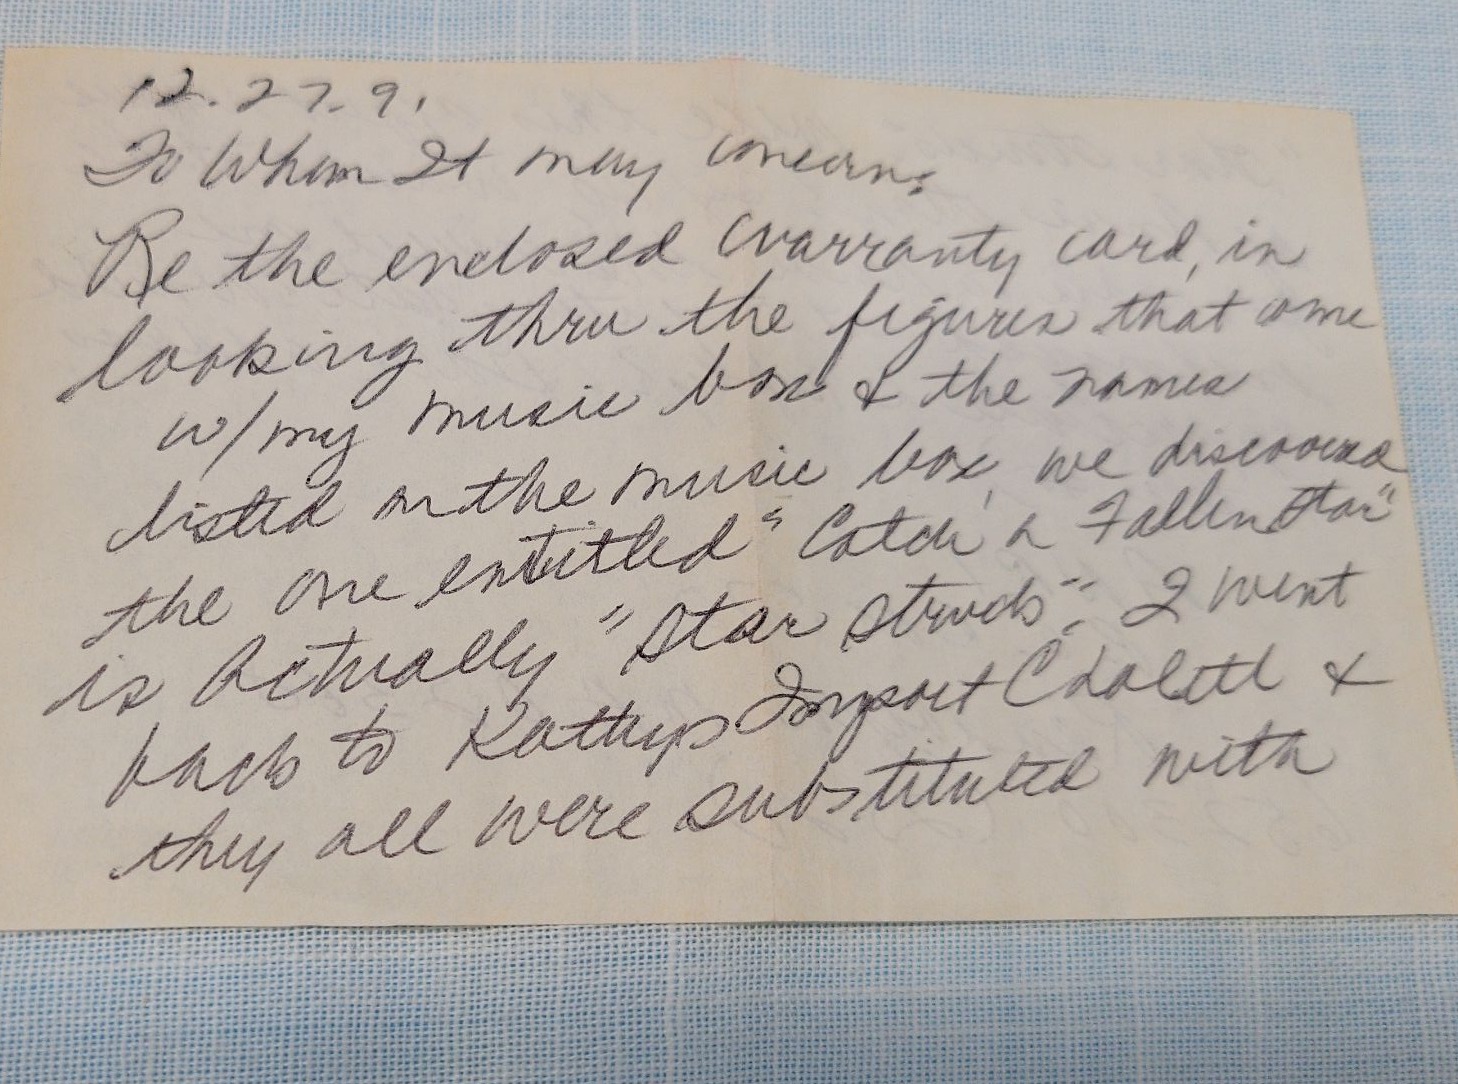 12.27.9.
To Whom It may concern:
Re the enclosed warranty card, in
looking thru the figures that come
w/my music box & the names
listed on the music box, we discovered
the one entitled "Catch a Fallen Star"
is actually "Star Struck". I went
back to Kathys Import &
they all were substituted with